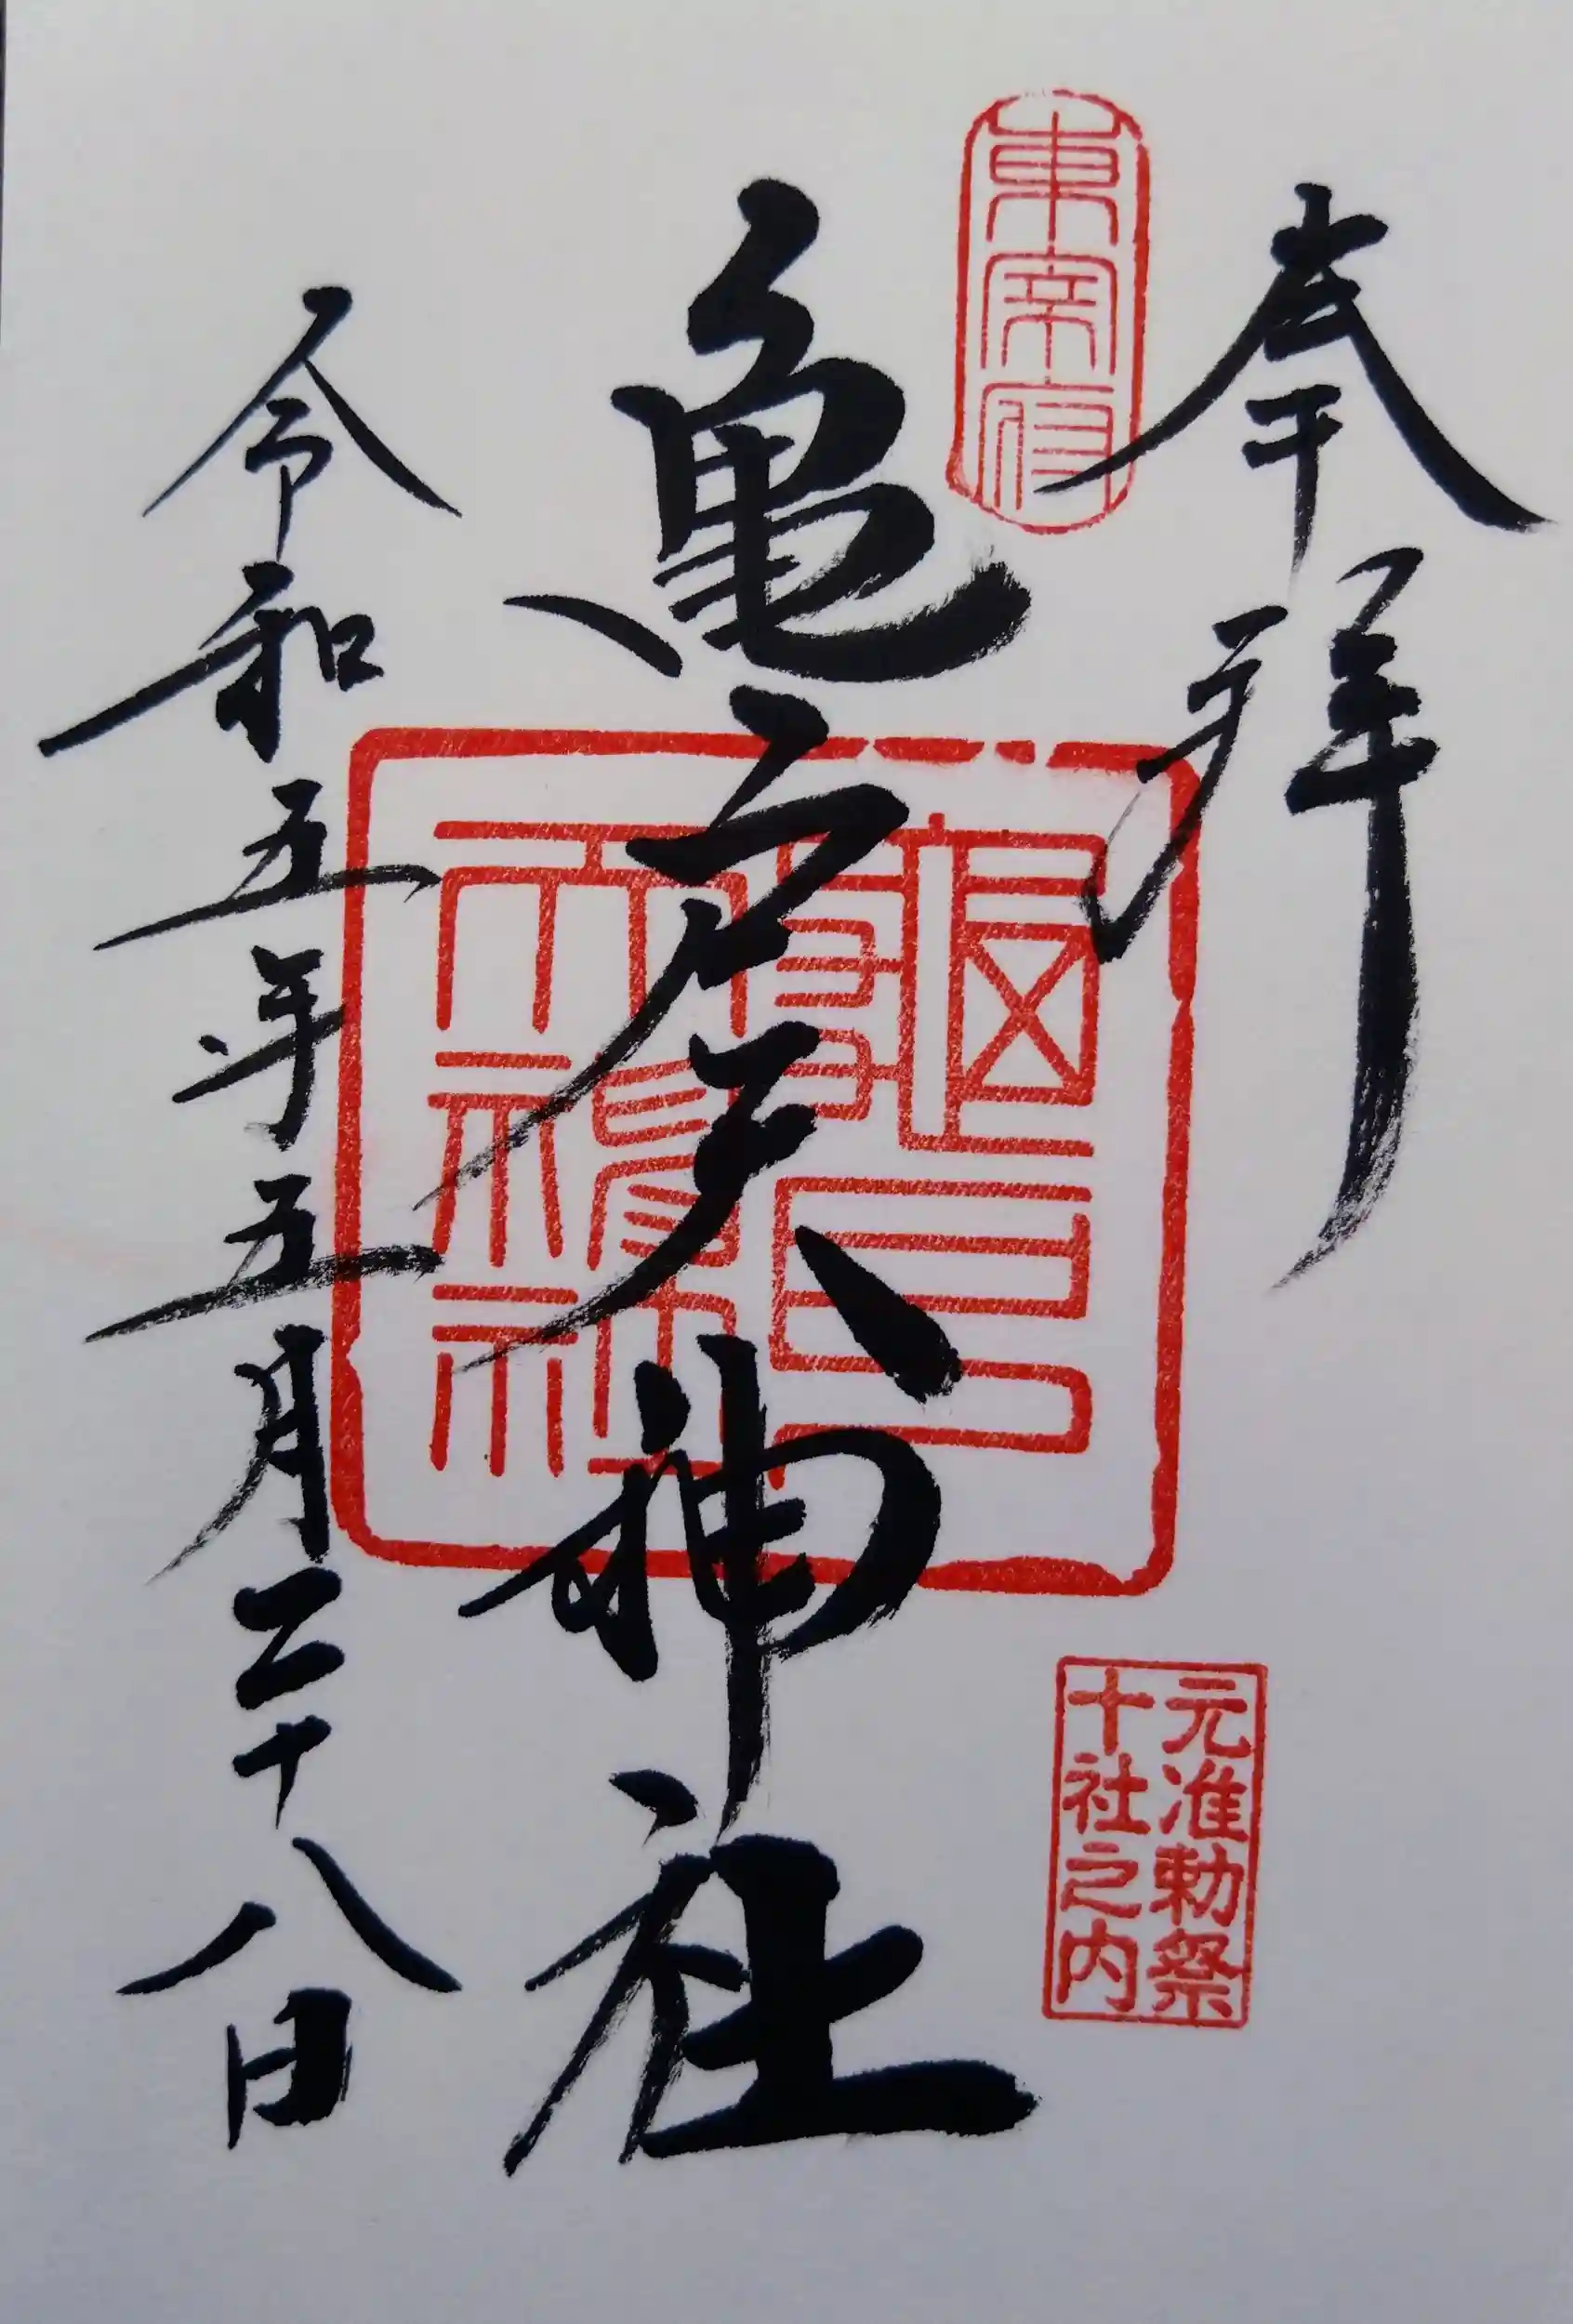 奉拝
東宰府
元准勅祭
十社之内
亀戸天神社
令和五年五月二十八日